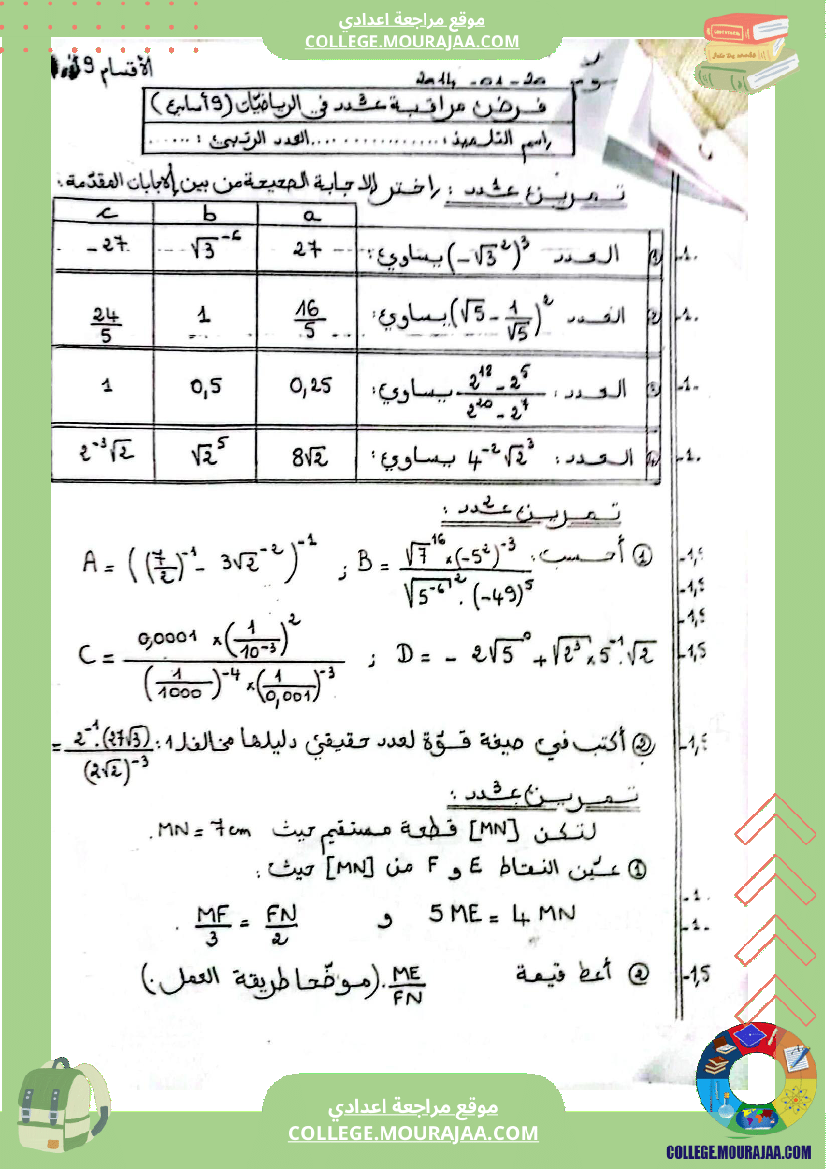 موقع مراجعة اعدادي
COLLEGE.MOURAJAA.COM
الأقسام 9
يوم 20 - 01 - 2014
فرض مراقبة عدد 3 في الرياضيّات (9 أساسي)
إسم التلميذ: ................ العدد الرتبي: ......
تمرين عدد 1 : إختر الإجابة الصحيحة من بين الإجابات المقدّمة :
a b c
1) العدد (-√3²)³ يساوي: 27 √3⁻⁶ -27 -1.
2) العدد (√5 - 1/√5)² يساوي: 16/5 1 24/5 -1.
3) العدد: (2¹⁸ - 2⁵)/(2²⁰ - 2⁷) يساوي: 0,25 0,5 1 -1.
4) العدد: 4⁻² √2³ يساوي: 8√2 √2⁵ 2⁻³√2 -1.
تمرين عدد 2 :
1) أحسب: B = (√7¹⁶ × (-5²)⁻³)/(√5⁻⁶² . (-49)⁵) ; A = ((7/2)⁻¹ - 3√2⁻²)⁻¹
C = (0,0001 × (1/10⁻³)²)/((1/1000)⁻⁴ × (1/0,001)⁻³) ; D = - 2√5⁰ + √2³ × 5⁻¹ . √2 -1,5
2) أكتب في صيغة قوّة لعدد حقيقي دليلها مخالف لـ 1 : (2⁻¹ . (27√3))/(2√2)⁻³ =
تمرين عدد 3 :
لتكن [MN] قطعة مستقيم حيث MN = 7cm .
1) عيّن النقاط E و F من [MN] حيث :
5 ME = 4 MN و MF/3 = FN/2 . -1. -1.
2) أعط قيمة ME/FN . (موضّحا طريقة العمل .) -1,5
موقع مراجعة اعدادي
COLLEGE.MOURAJAA.COM
COLLEGE.MOURAJAA.COM